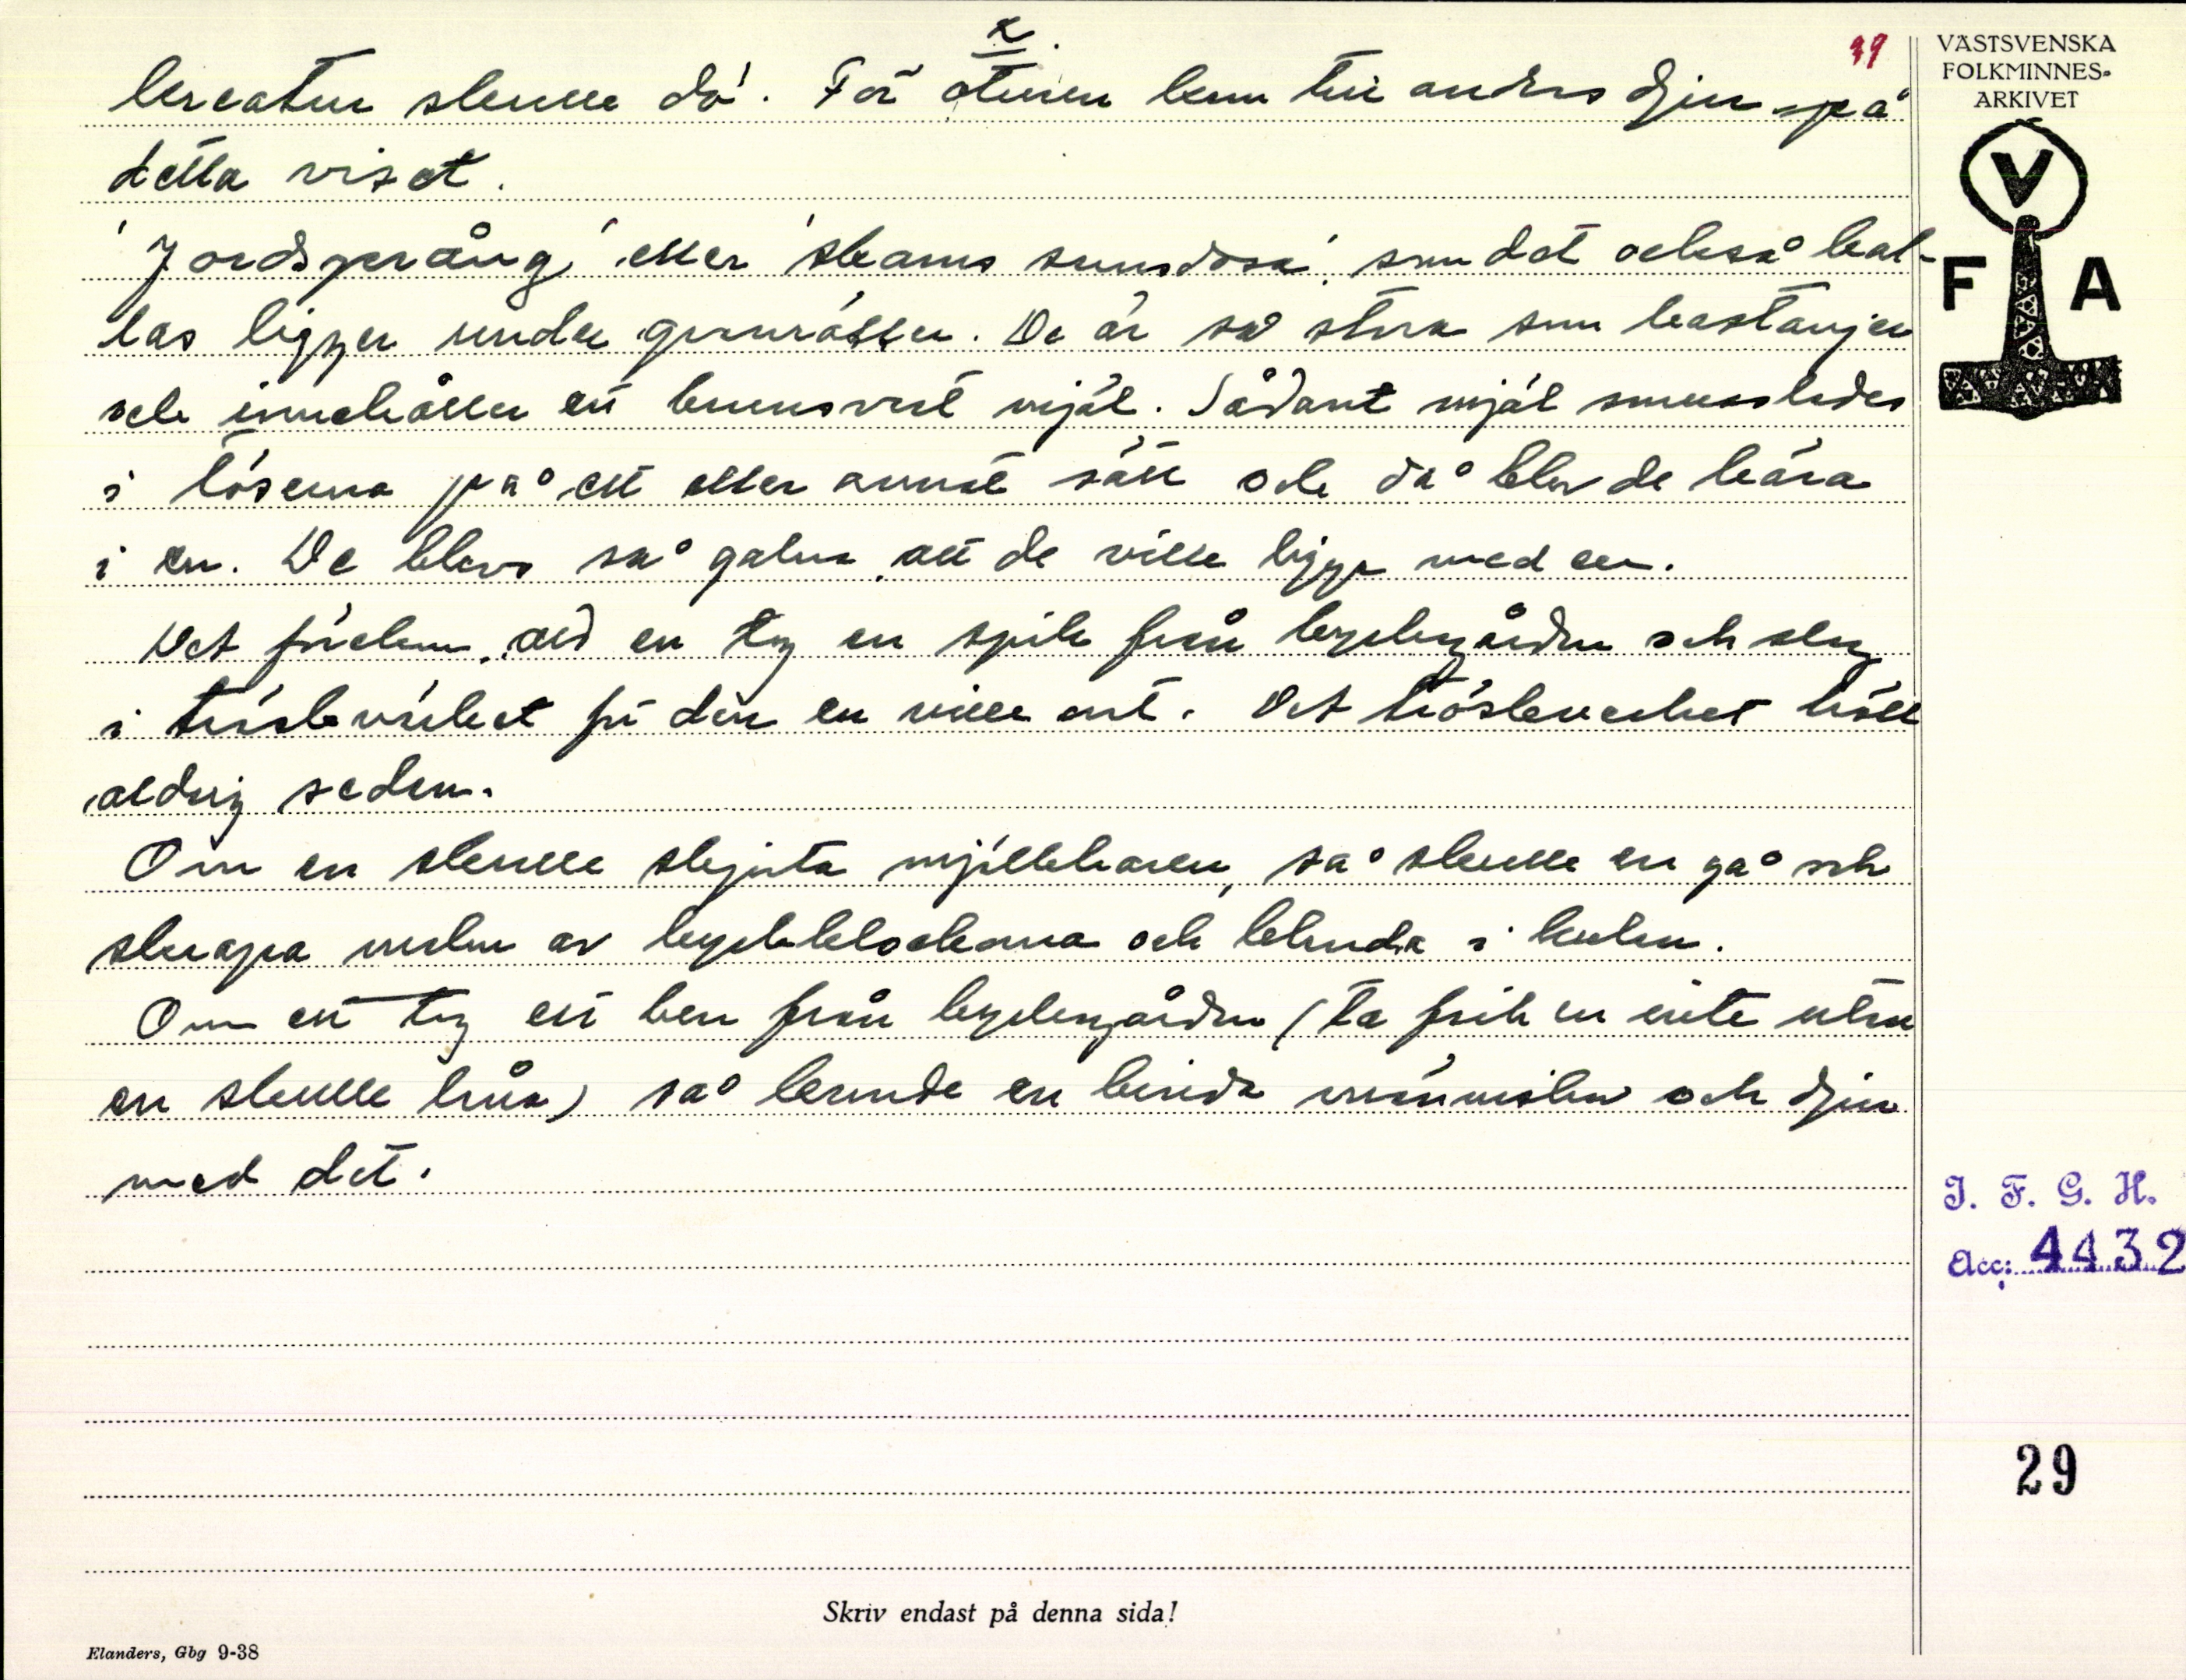 39
x
kreatur skulle dö. För oturen kom till andras djur på
detta viset.
'Jordsprång' eller 'skams snusdosa', som det också kal-
las ligger under granrötter. De är så stora som kastanjer
och innehåller ett brunsvart mjöl. Sådant mjöl smusslades
i töserna på ett eller annat sätt och då blev de kära
i en. De blevo så galna att de ville ligga med en.
Det förekom att en tog en spik från kyrkogården och slog
i tröskverket för den en ville ont. Det tröskverket höll
aldrig sedan.
Om en skulle skjuta mjölkharen, så skulle en gå och
skrapa malm av kyrkklockorna och blanda i kulan.
Om en tog ett ben från kyrkogården (ta fick en inte utan
en skulle låna) så kunde en binda människor och djur
med det.
VÄSTSVENSKA
FOLKMINNES-
ARKIVET
V
F A
I. F. G. H.
Acc: 4432
29
Skriv endast på denna sida!
Elanders, Gbg 9-38